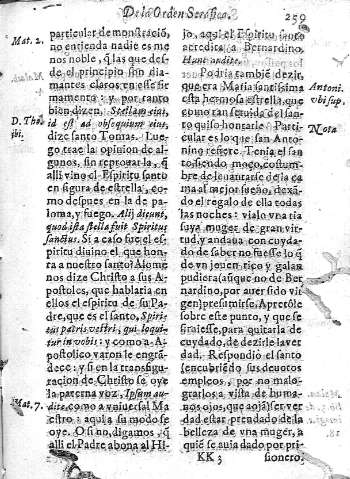 De la Orden Serafica. 259
Mat. 2.
particular demonstració,
no entienda nadie es me
nos noble, q̃ las que des-
de el principio son dia-
mantes claros en esse fir
mamento: y por tanto
bien dizen, Stellam eius,
id est ad obsequium eius,
D. Tho.
ibi.
dize santo Tomas. Lue-
go trae la opinion de al-
gunos, sin reprouarla, q̃
alli vino el Espiritu santo
en figura de estrella, co-
mo despues en la de pa-
loma, y fuego. Alij dicunt,
quod ista stella fuit Spiritus
sanctus. Si a caso fue el es-
piritu diuino el que hon-
ra a nuestro santo? Alomé
nos dize Christo a sus A-
postoles, que hablaria en
ellos el espiritu de su Pa-
dre, que es el santo, Spiri-
tus patris vestri, qui loqui-
tur in vobis: y como a A-
postolico varon le engrã-
dece: y si en la transfigu-
racion de Christo se oye
la paterna voz, Ipsum au-
Mat. 7.
dite, como a vniuersal Ma
estro: aqui a su modo se
oye. O si no, digamos, q̃
alli el Padre abona al Hi-
jo, aqui el Espiritu santo
acredita a Bernardino,
Hunc audite.
Podria tambié dezir,
que era Maria santissima
Antoni.
vbi sup.
esta hermosa estrella, que
como tan seruida del san-
to quiso honrarle. Parti-
Nota
cular es lo que san Anto-
nino refiere. Tenia el san
to siendo moço, costum-
bre de leuantarse de la ca
ma al mejor sueño, dexã-
do el regalo de ella todas
las noches: vialo vna tia
suya muger de gran vir-
tud, y andaua con cuyda-
do de saber no fuesse lo q̃
de vn jouen rico y galan
pudiera (aũque no de Ber
nardino, por auer sido vir
gen) presumirse. Apretóle
sobre este punto, y que se
siruiesse, para quitarla de
cuydado, de dezirle la ver
dad. Respondió el santo
(encubriédo sus deuotos
empleos, por no malo-
grarlos a vista de huma-
nos ojos, que aojã) ser ver
dad estar prendado de la
belleza de vna muger, a
quié se auia dado por pri-
KK 3 sionero: